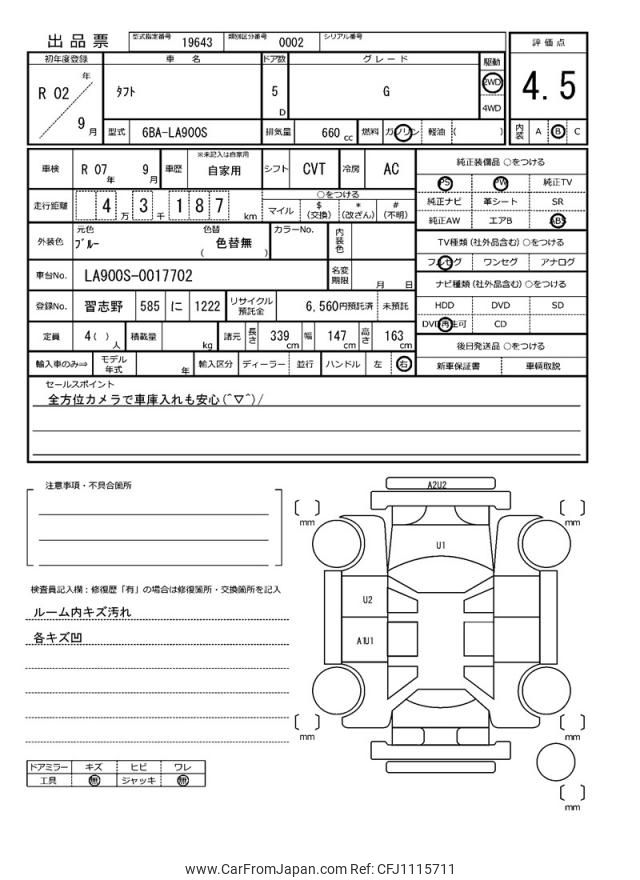 出品票 型式指定番号 19643 類別区分番号 0002 シリアル番号
評価点
4.5
内装 A B C
初年度登録 車名 ドア数 グレード 駆動
R 02年 / 9月 タフト 5 D G 2WD 4WD
型式 6BA-LA900S 排気量 660 cc 燃料 ガソリン 軽油 ( )
車検 R 07年 9月 車歴 ※未記入は自家用 自家用 シフト CVT 冷房 AC
走行距離 4万 3千 1 8 7 km ○をつける
マイル $(交換) *(改ざん) #(不明)
外装色 元色 ブルー 色替 ( 色替無 ) カラーNo. 内装色
車台No. LA900S-0017702 名変期限 月 日
登録No. 習志野 585 に 1222 リサイクル預託金 6,560円預託済 未預託
定員 4( )人 積載量 kg 諸元 長さ 339cm 幅 147cm 高さ 163cm
輸入車のみ⇒ モデル年式 年 輸入区分 ディーラー 並行 ハンドル 左 右
純正装備品 ○をつける
PS PW 純正TV
純正ナビ 革シート SR
純正AW エアB ABS
TV種類(社外品含む)○をつける
フルセグ ワンセグ アナログ
ナビ種類(社外品含む)○をつける
HDD DVD SD
DVD再生可 CD
後日発送品 ○をつける
新車保証書 車輌取説
セールスポイント
全方位カメラで車庫入れも安心(^▽^)/
注意事項・不具合箇所
検査員記入欄：修復歴「有」の場合は修復箇所・交換箇所を記入
ルーム内キズ汚れ
各キズ凹
ドアミラー キズ ヒビ ワレ
工具 無 ジャッキ 無
A2U2
mm
mm
U1
U2
A1U1
mm
mm
mm
www.CarFromJapan.com Ref: CFJ1115711